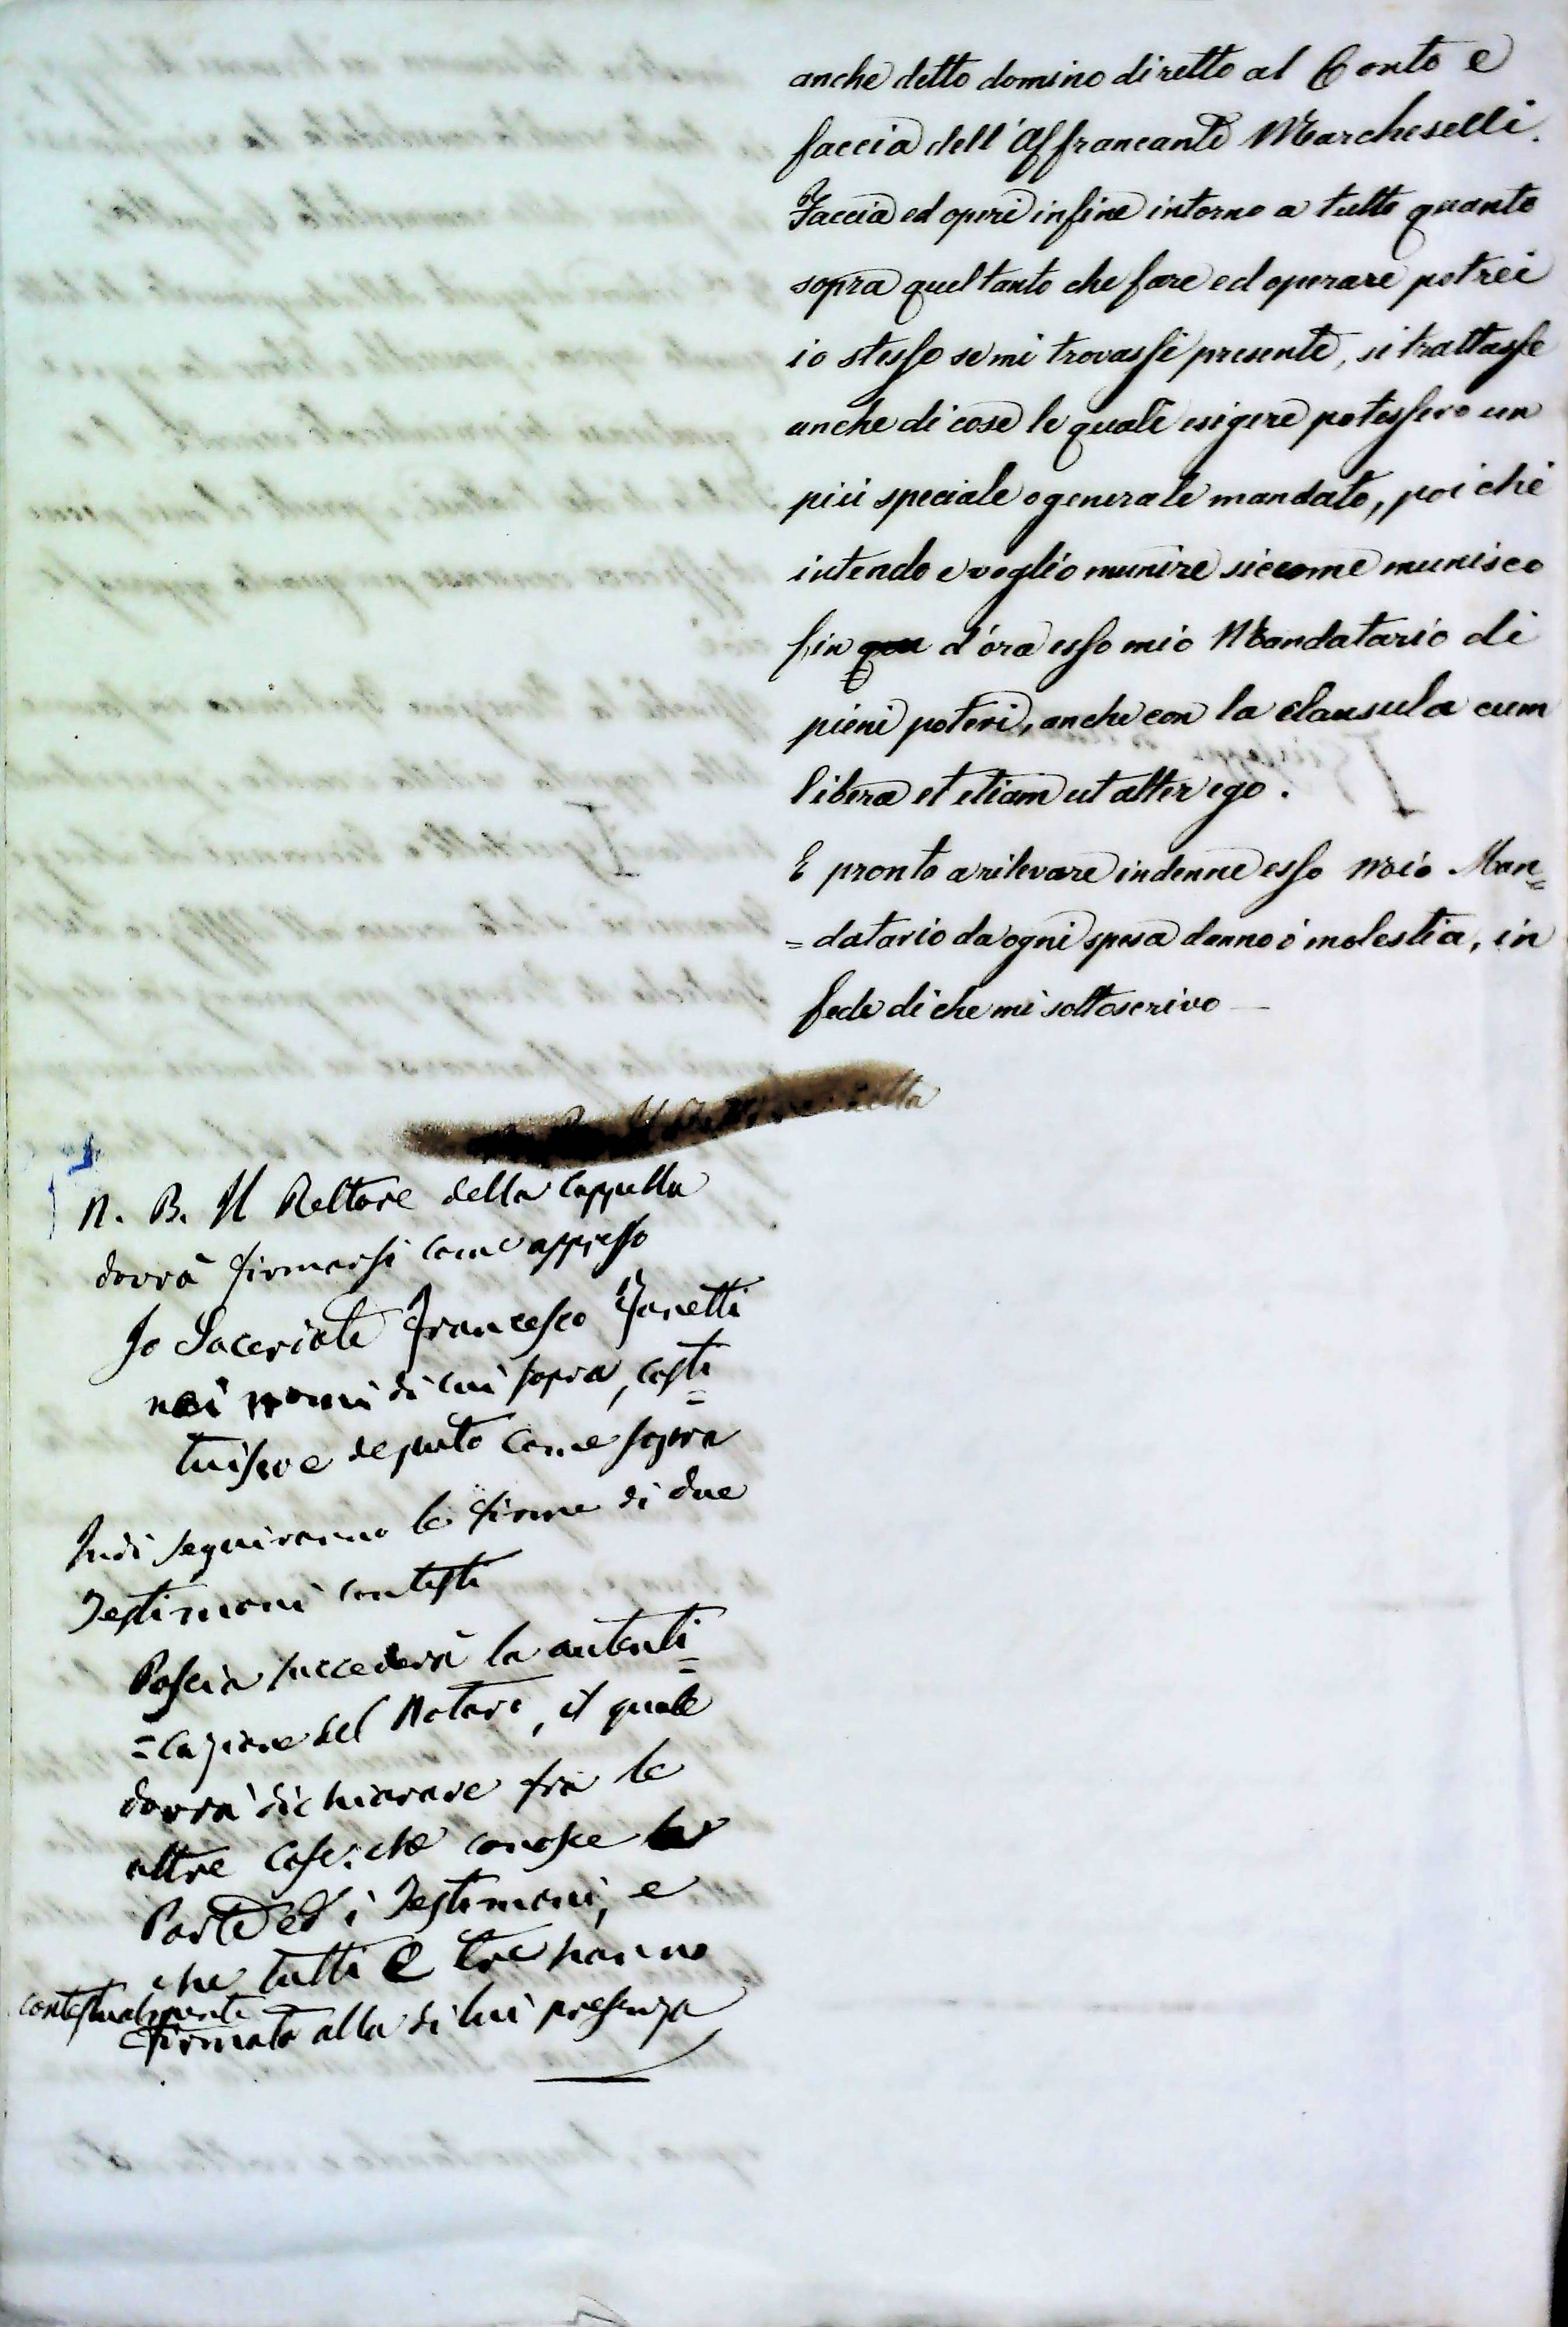 anche detto domino diretto al Conto e
faccia dell'Affrancante Marcheselli.
Faccia ed operi infine intorno a tutto quanto
sopra quel tanto che fare ed operare potrei
io stesso se mi trovassi presente, si trattasse
anche di cose le quali esigere potessero un
più speciale o generale mandato, poi chè
intendo e voglio munire siccome munisco
fin qui d'ora esso mio Mandatario di
pieni poteri, anche con la clausula cum
libera et etiam ut alter ego.
E pronto a rilevare indenne esso mio Man=
=datario da ogni spesa danno o molestia, in
fede di che mi sottoscrivo —
N. B. Il Rettore della Cappella
dovrà firmarsi come appresso
Io Sacerdote Francesco Zanetti
nei nomi di cui sopra, costi=
tuisco e deputo come sopra
Indi seguiranno le firme di due
Testimoni contesti
Poscia succederà la autenti=
=cazione del Notaro, il quale
dovrà dichiarare fra le
altre cose: che conosce la
Parte ed i Testimoni, e
che tutti e tre hanno
contestualmente
firmato alla di lui presenza